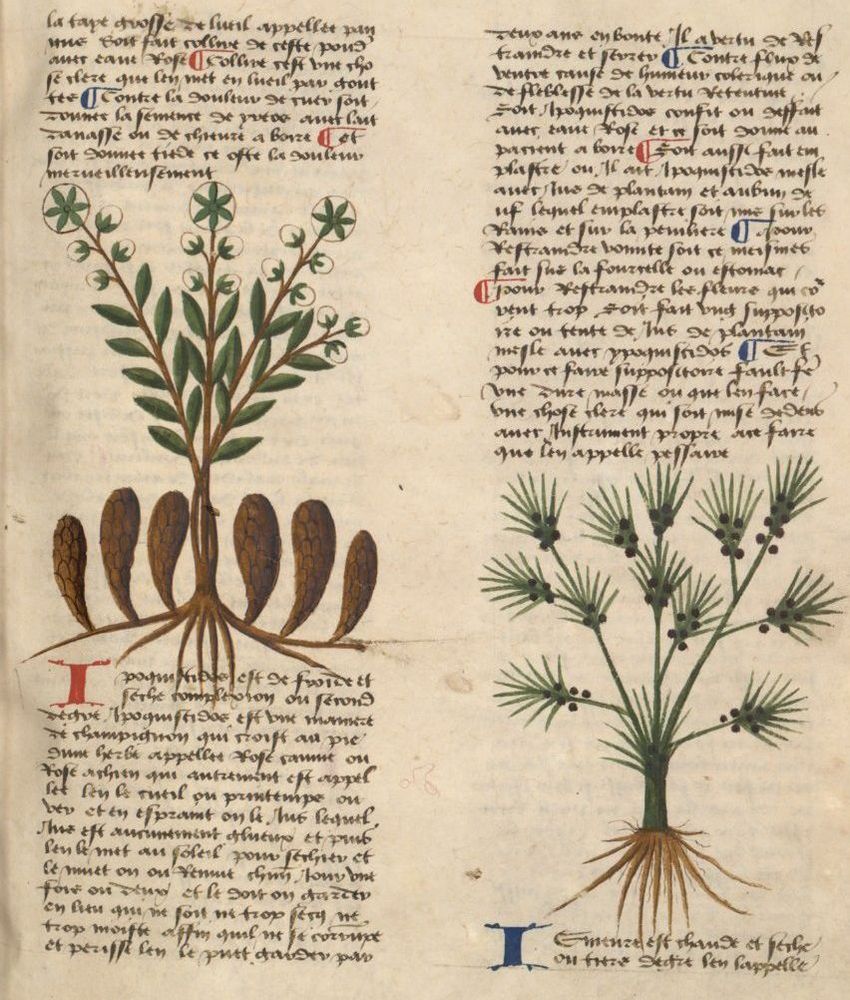 la tape grosse de lueil appellee pan
nus Soit fait collire de ceste poud'
avec eaue Rose ¶ Collire cest une cho
se clere que len met en lueil par gout
tes ¶ Contre la douleur de cuer soit
donnee la semence de avec lait
danasse ou de chieure a boire ¶ et
soit donnee tiede ce oste la douleur
merveilleusement
Ipoquistidos est de froide et
seche complexion ou second
degre Ipoquistidos est une maniere
de champignon qui croist au pie
dune herbe appellee Rose canine ou
Rose achien qui autrement est appel
lee len le cueil ou printemps ou
ver et en espraint on le Ius lequel
Ius est aucunement glueux et puis
len le met au soleil pour sechier et
le muet on ou Remue chun Iour une
fois ou deux et le doit on garder
en lieu qui ne soit ne trop secq ne
trop moiste affin quil ne se corrumpe
et perisse len le puet garder par
deux ans en bonte Il a vertu de Res
traindre et serrer ¶ Contre flux de
ventre cause de humeur colerique ou
de fleblesse de la vertu Retentive
Soit Ipoquistidos confit ou deffait
avec eaue Rose et ce soit donne au
pacient a boire ¶ Soit aussi fait em
plastre ou Il ait Ipoquistidos mesle
avec Ius de plantain et aubun de
uf lequel emplastre soit mis sur les
Rains et sur la peniliere ¶ Pour
Restraindre vomite soit ce meismes
fait sus la fourcelle ou estomac
¶ Pour Restraindre les fleurs qui
vent trop Soit fait ung supposito
ire ou tente de Ius de plantain
mesle avec ypoquistidos ¶ Et
pour ce faire suppositoire fault
une dure masse ou que len face
une chose clere qui soit mise dedens
avec Instrument propre ace faire
que len appelle pessaire
est chaude et seche
ou tiers degre len lappelle